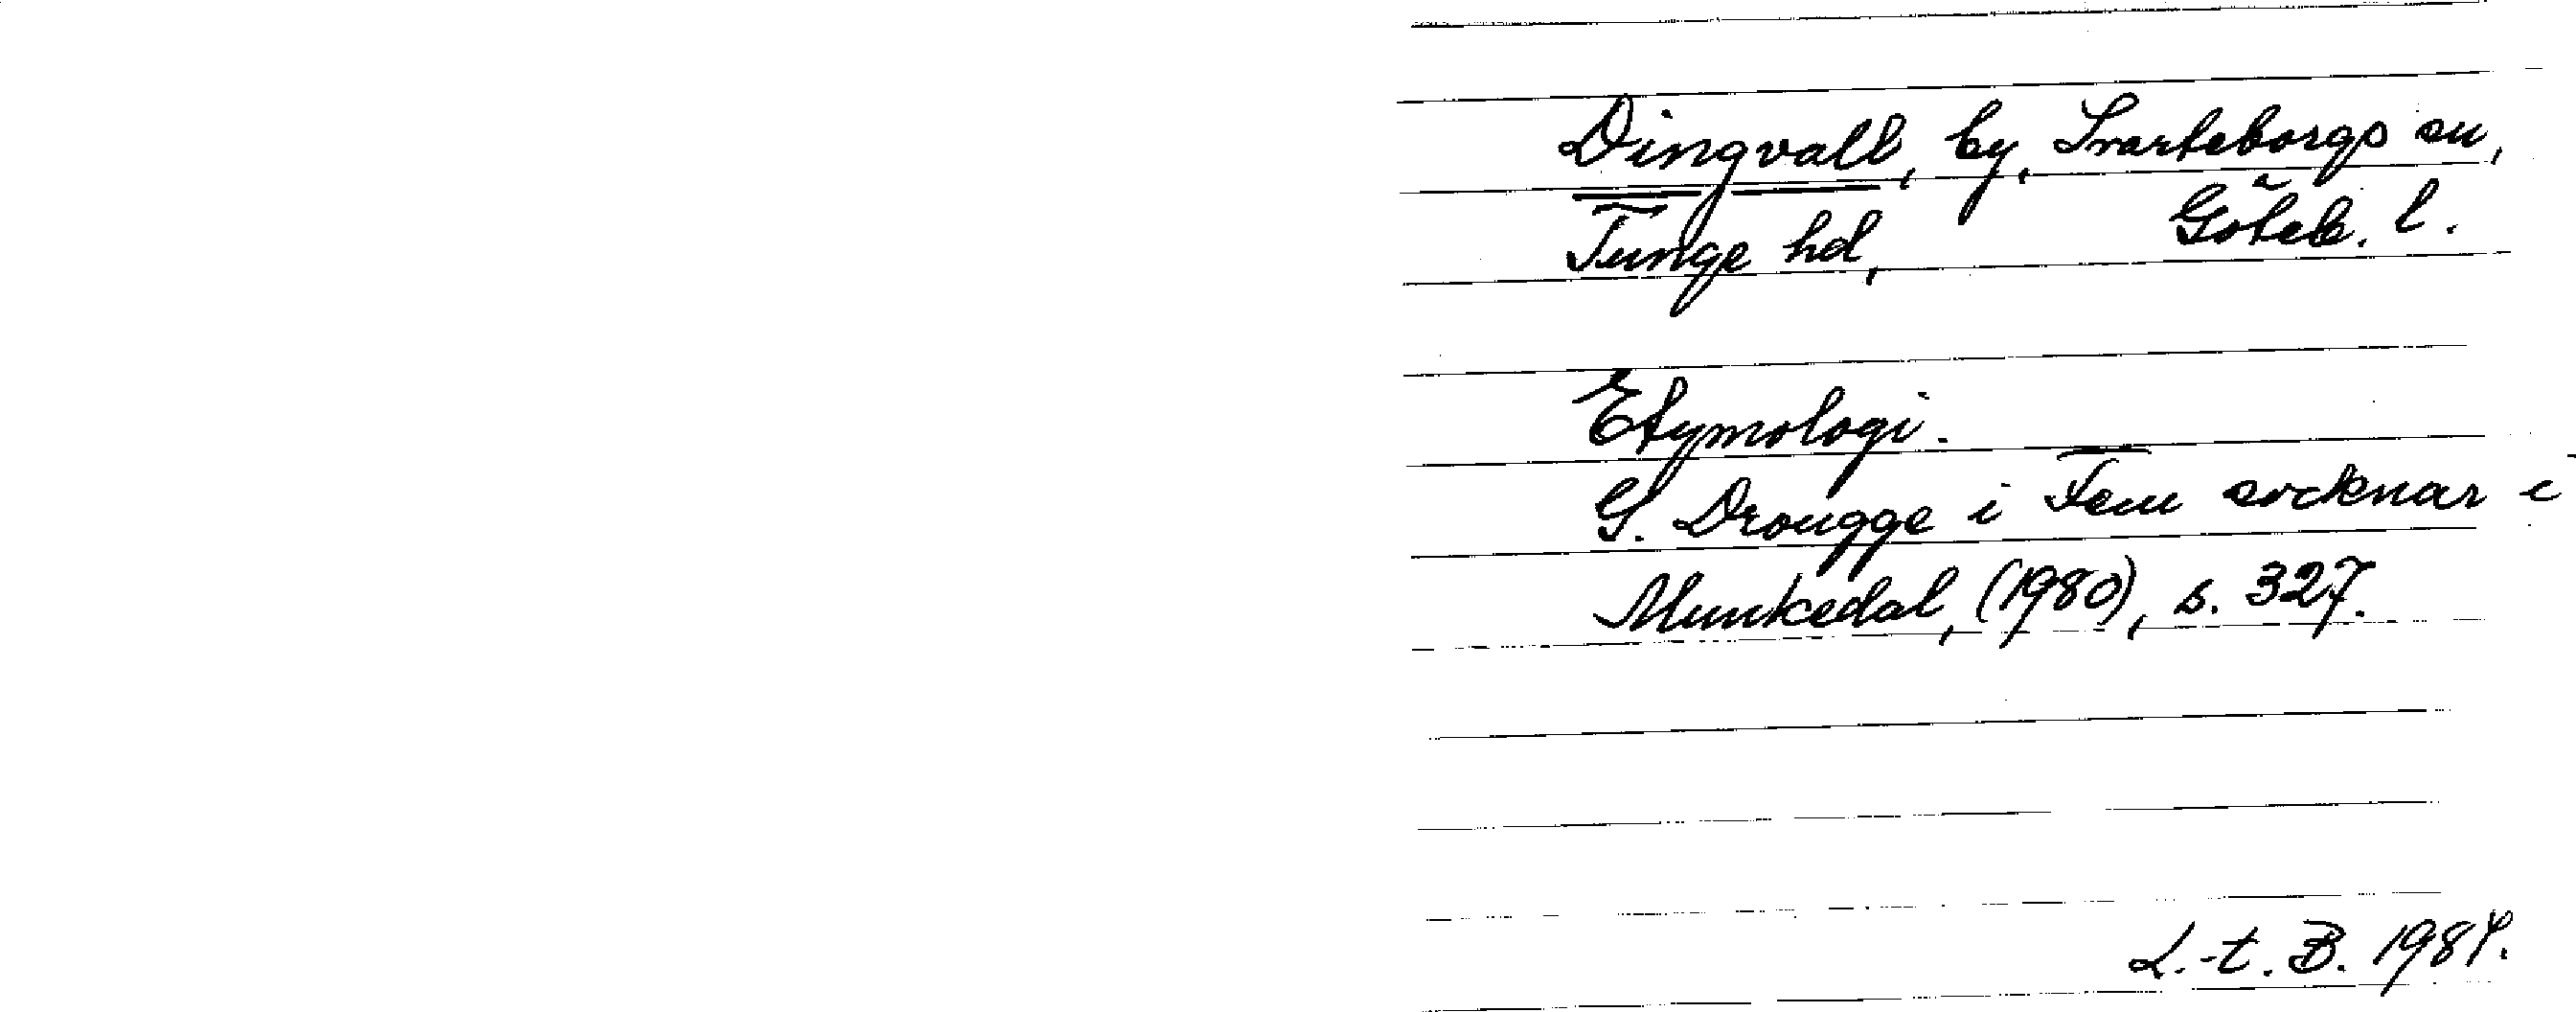 Dingvall, by, Svarteborgs sn,
Tunge hd, Göteb. l.
Etymologi.
G. Drougge i Fem socknar i
Munkedal, (1980), s. 327.
L.-t. B. 1984.